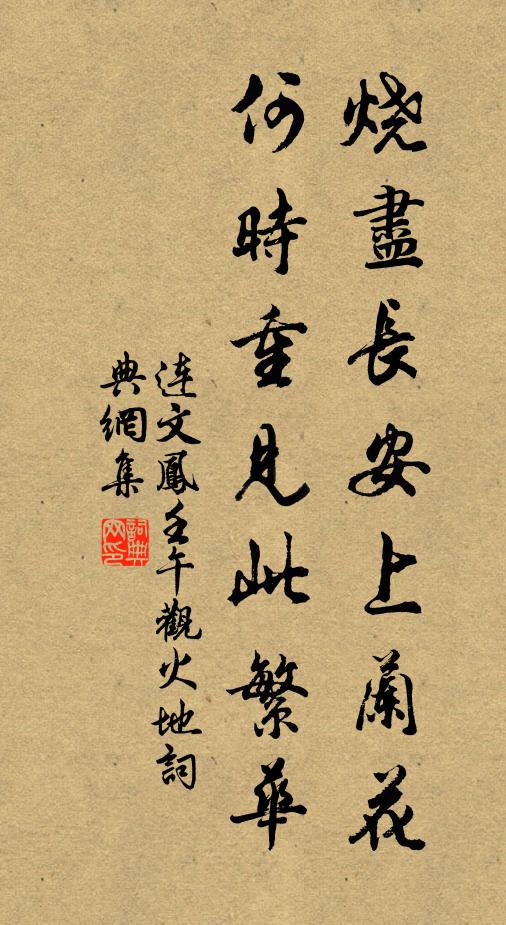 烧盡長安上蘭花
何時重見此繁華
连文鳳壬午觀火地詞
典網集
詞典网印